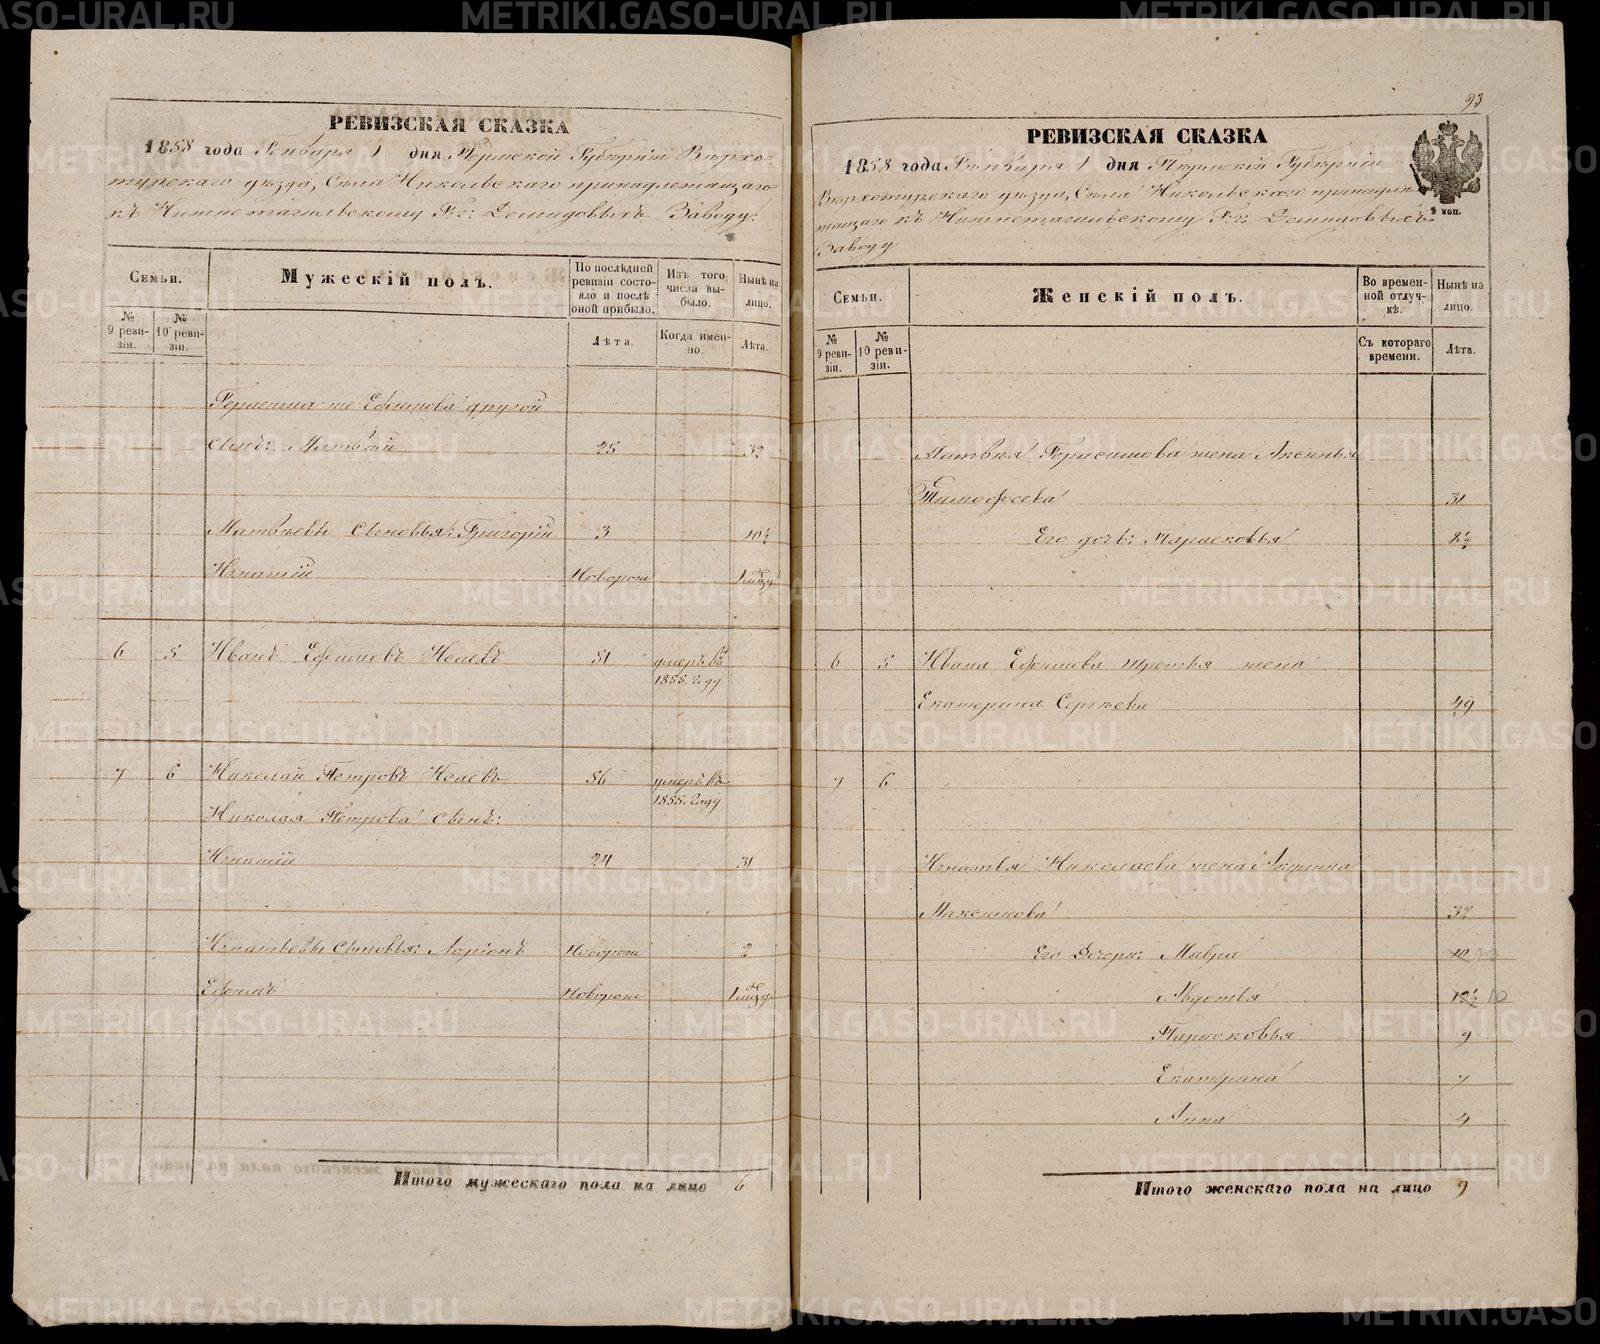 РЕВИЗСКАЯ СКАЗКА
1858 года Января 1 дня Пермской Губерніи Верхо-
турскаго уѣзда, Села Никольскаго принадлежащаго
къ Нижнетагильскому Гг: Демидовыхъ Заводу:
Семьи.
Мужескій полъ.
По послѣдней ревизіи состояло и послѣ оной прибыло.
Изъ того числа выбыло.
Нынѣ на лицо.
№ 9 ревизіи.
№ 10 ревизіи.
Лѣта.
Когда именно.
Лѣта.
Герасима же Ефимова другой
сынъ: Матвѣй 25 32
Матвѣевы сыновья: Григорій 3 10½
Игнатій Новорож 1 мѣсяц
6 5 Иванъ Ефимовъ Исаевъ 51 умеръ въ
1855. году
7 6 Николай Петровъ Исаевъ 56 умеръ въ
1855. году
Николая Петрова сынъ:
Игнатій 24 31
Игнатьевы сыновья: Ларіонъ Новорож 2
Ефимъ Новорож 1 мѣсяц
Итого мужескаго пола на лицо 6
93
РЕВИЗСКАЯ СКАЗКА
1858 года Января 1 дня Пермской Губерніи
Верхотурскаго уѣзда, Села Никольскаго принадле-
жащаго къ Нижнетагильскому Гг: Демидовыхъ
Заводу
2 коп.
Семьи.
Женскій полъ.
Во временной отлучкѣ.
Нынѣ на лицо.
№ 9 ревизіи.
№ 10 ревизіи.
Съ котораго времени.
Лѣта.
Матвѣя Герасимова жена Аксинья
Тимофеева 31
Его дочь: Марасковья 8½
6 5 Ивана Ефимова третья жена
Екатерина Сергѣева 49
7 6
Игнатья Николаева жена Акулина
Максимова 32
Его Дочери: Мавра
Авдотья 12½ 10
Парасковья 9
Екатерина 7
Анна 4
Итого женскаго пола на лицо 9
METRIKI.GASO-URAL.RU